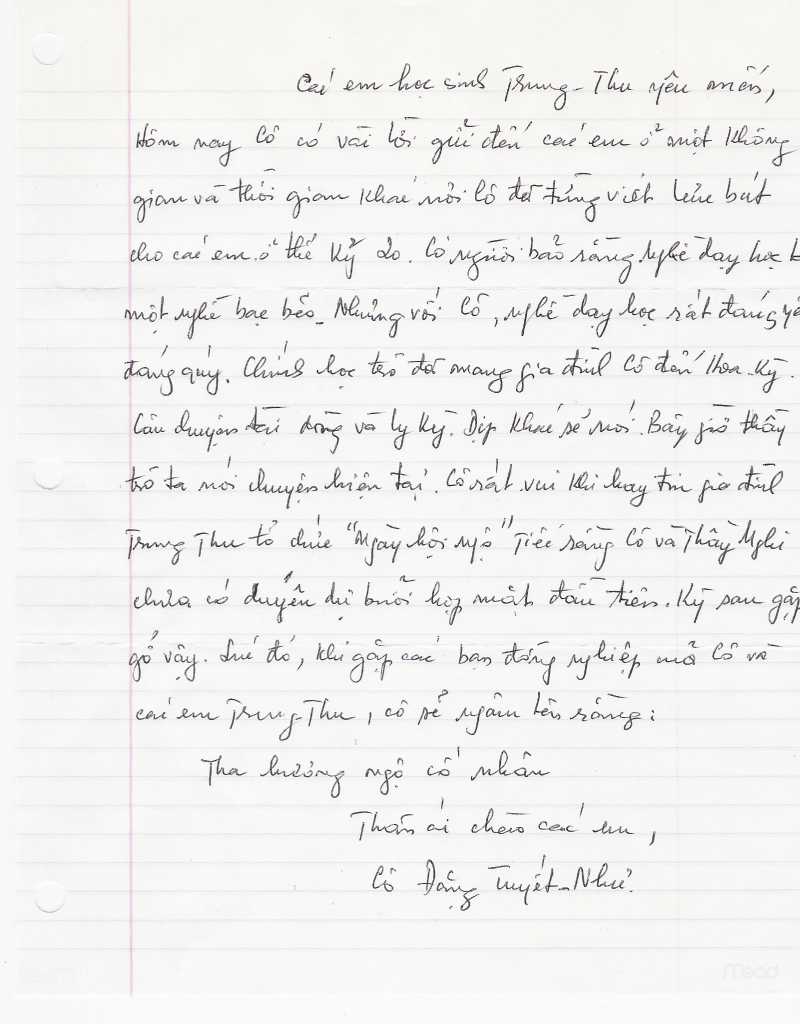 Các em học sinh Trung-Thu yêu mến,
Hôm nay Cô có vài lời gửi đến các em ở một không
gian và thời gian khác nơi Cô đã từng viết lưu bút
cho các em ở thế kỷ 20. Có người bảo rằng nghề dạy học
một nghề bạc bẽo. Nhưng với Cô, nghề dạy học rất đáng
đáng quý. Chính học trò đã mang gia đình Cô đến Hoa-Kỳ.
Câu chuyện dài dòng và ly kỳ. Dịp khác sẽ nói. Bây giờ thầy
trò ta nói chuyện hiện tại. Cô rất vui khi hay tin gia đình
Trung Thu tổ chức "Ngày hội ngộ" Tiếc rằng Cô và Thầy Nghi
chưa có duyên dự buổi họp mặt đầu tiên. Kỳ sau gặp
gỡ vậy. Lúc đó, khi gặp các bạn đồng nghiệp mà Cô và
các em Trung-Thu, cô sẽ ngâm lên rằng:
Tha hương ngộ cố nhân
Thân ái chào các em,
Cô Đặng Tuyết-Như.
Mead